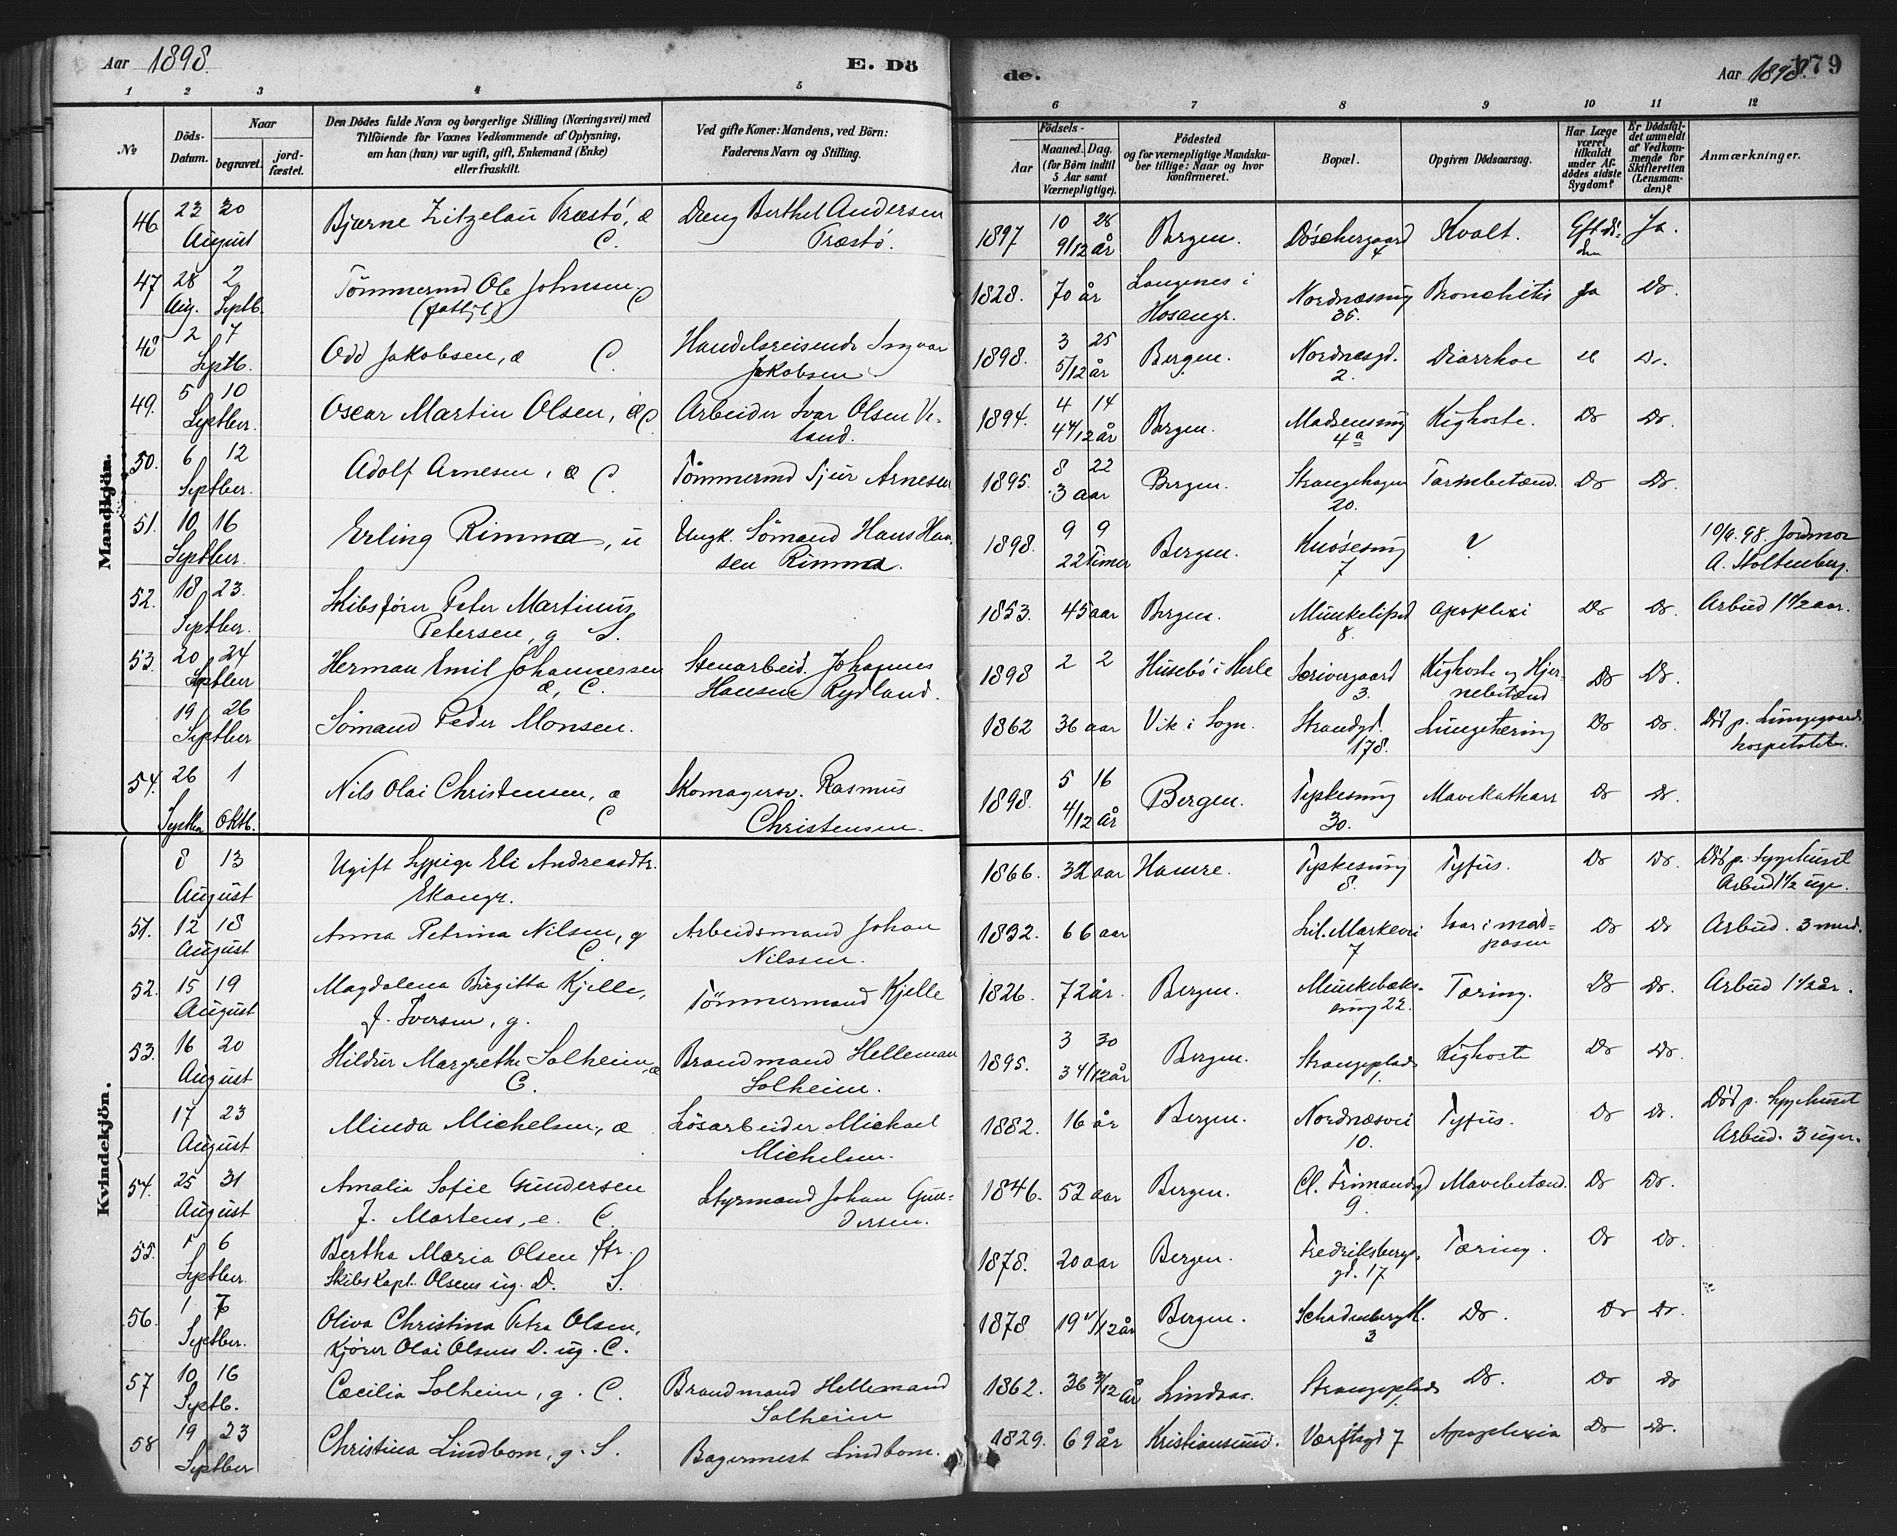 Aar 1898.
E. Dö
de.
Aar 1898.
179
1 2 3 4 5 6 7 8 9 10 11 12
No
Döds-
Datum.
Naar
begravet.
jord-
fæstet.
Den Dödes fulde Navn og borgerlige Stilling (Næringsvei) med
Tilföiende for Voxnes Vedkommende af Oplysning,
om han (hun) var ugift, gift, Enkemand (Enke)
eller fraskilt.
Ved gifte Koner: Mandens, ved Börn:
Faderens Navn og Stilling.
Födsels-
Aar
Maaned. Dag.
(for Börn indtil
5 Aar samt
Værnepligtige).
Födested
og for værnepligtige Mandska-
ber tillige: Naar og hvor
konfirmeret.
Bopæl.
Opgiven Dödsaarsag.
Har Læge
været
tilkaldt
under Af-
dödes sidste
Sygdom?
Er Dödsfal-
det anmeldt
af Vedkom-
mende for
Skifteretten
(Lensman-
den)?
Anmærkninger.
Mandkjön.
46 23 30 Bjarne Zitzelau Træstö, æ Dreng Berthel Andersen 1897 10 28 Bergen. Kvalt. Ja.
August C. Træstö. 9/12 år 4
47 28 2 Tömmermd Ole Johnsen. C 1828. 70 år Langenes i Bronchitis Ja Do.
Aug. Septb. Hosangr. 35.
48 2 7 Odd Jakobsen, æ C Handelsreisende Ingvar 1898. 3 25 Bergen. Nordnesgd. Diarrhoe Do.
Septb. Jakobsen 5/12 år 2.
49. 5 10 Oscar Martin Olsen, æ C Arbeider Ivar Olsen Ve- 1894. 4 14 Bergen. Madsensmg Kighoste. Do Do.
Septber. land. 4 4/12 år 4a
50. 6 12 Adolf Arnesen, æ C Tömmermd Tjur Arnesen 1895. 8 22 Bergen. Strangehagen Tarmbetænd. Do Do.
Septber. 3 aar 20.
51. 10 16 Erling Rimma, u Ungk. Sömand Hans Han- 1898. 9 9 Bergen. Knösesmg ? 10/9. 98. Jordmor
Septber. sen Rimma. 22 Timer 7 A. Stoltenberg.
52. 18 23. Skibsförer Peter Martinus 1853. 45 aar Bergen. Apoplexi Do Do. Arbud 1 1/2 aar.
Septber. Petersen, g S. 8.
53. 20 24 Herman Emil Johannessen Stenarbeid. Johannes 1898 2 2 Husebö i Herle Kighoste og Hjer- Do Do.
Septber æ, C. Hansen Rydland. 3. nebetænd
19 26 Sömand Peder Monsen. 1862 36 aar Vik i Sogn. Strandgd. Lungetæring Do Do. Död p. Lungegaards
Septber 178. hospitalet.
54. 26 1 Nils Olai Christensen, æ Skomagersv. Rasmus 1898. 5 16 Bergen. Tyskesmug Mavekatharr Do Do.
Septbr Oktb. C Christensen. 4/12 år 30.
Kvindekjön.
8 13 Ugift Sypige Eli Andreasdtr. 1866. 32 aar Hamre. Tyskesmug Tyfus. Do Do. Död p. Sygehuset
August Ekangr. 8. Arbud 1 1/2 uge.
51. 12 18 Anna Petrina Nilsen, g Arbeidsmand Johan 1832. 66 aar Lil. Markevei Saar i mad- Do Do Arbud. 3 mnd.
August C. Nilssen. 7 posen
52. 15 19 Magdalena Birgitta Kjelle, Tömmermand Kjelle 1826. 72 år. Bergen. Munkebæks- Tæring. Do Do. Arbud 1 1/2 år.
August f. Iversen, g. smug 22.
53. 16 20 Hildur Margrethe Solheim, æ Brandmand Helleman 1895. 3 30 Bergen. Strangeplads Kighoste Do Do.
August C. Solheim. 3 4/12 år 1.
17 23 Minda Michelsen, æ Lösarbeider Michael 1882. 16 år Bergen. Nordnæsvei Tyfus. Do Do. Död p. Sygehuset
August Michelsen. 10. Arbud. 3 uger.
54. 25 31 Amalia Sofie Gundersen Styrmand Johan Gun- 1846. 52 aar Bergen. Cl. Frimandsgd Mavebetænd. Do Do.
August f. Martens, e. C. dersen. 9.
55. 1 6 Bertha Maria Olsen ftr. 1878. 20 aar Bergen. Fredriksbergs- Tæring. Do Do.
Septber. Skibskapt. Olsens ug. D. S. gd. 17
56. 1 6 Oliva Christina Petra Olsen, 1878 19 4/12 år Bergen. Do. Do Do.
Septber. Kjörer Olai Olsens D. ug. C. 3
57 10 16 Cæcilia Solheim, g. C. Brandmand Hellemand 1862. 36 3/12 år Lindaas. Strangeplads Do. Do Do
Septb. Solheim 1.
58 19 23 Christina Lindbom, g. S. Bagermest Lindbom. 1829. 69 år Kristiansund. Værftsgd 7 Apoplexia Do Do.
Septber